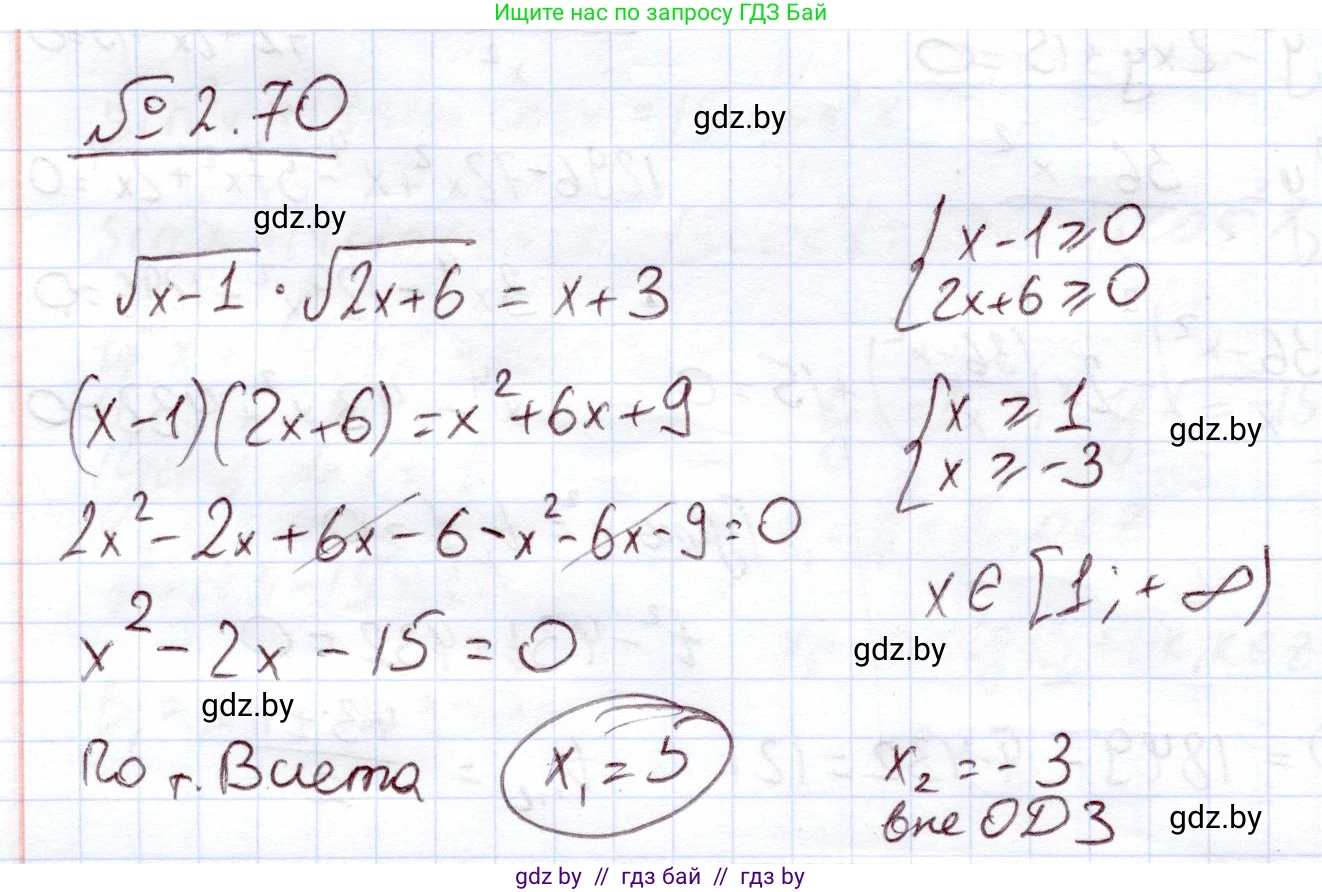 Ищите нас по запросу ГДЗ Бай
№ 2.70
gdz.by
gdz.by
√x-1 · √2x+6 = x+3
{ x-1 ≥ 0
2x+6 ≥ 0
(x-1)(2x+6) = x²+6x+9
{ x ≥ 1
x ≥ -3
gdz.by
2x² - 2x + 6x - 6 - x² - 6x - 9 = 0
x ∈ [1; +∞)
x² - 2x - 15 = 0
gdz.by
gdz.by
По т. Виета
x₁ = 5
x₂ = -3
вне ОДЗ
gdz.by
gdz by // гдз бай // гдз by